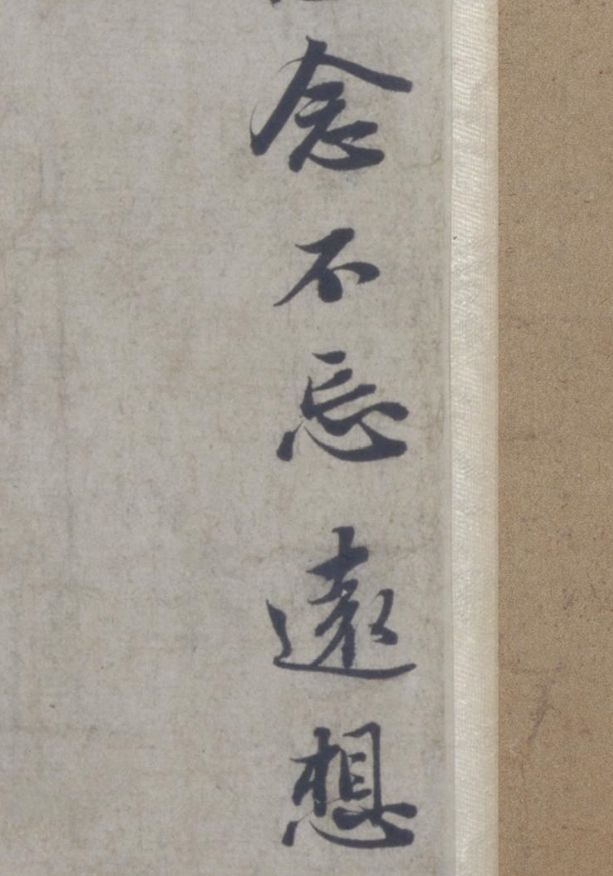 念不忘遠想